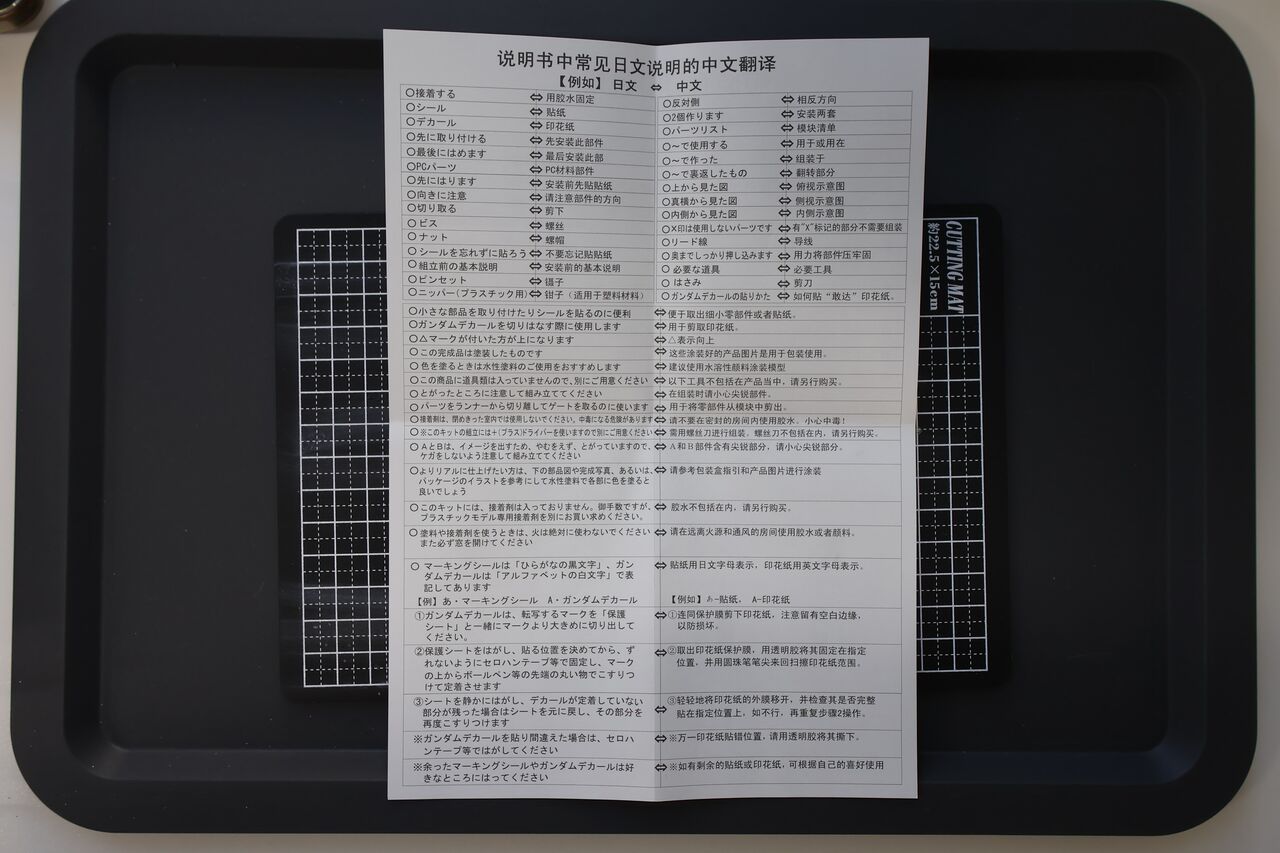 说明书中常见日文说明的中文翻译
【例如】 日文 ⇔ 中文
○接着する ⇔ 用胶水固定
○シール ⇔ 贴纸
○デカール ⇔ 印花纸
○先に取り付ける ⇔ 先安装此部件
○最後にはめます ⇔ 最后安装此部
○PCパーツ ⇔ PC材料部件
○先にはります ⇔ 安装前先贴贴纸
○向きに注意 ⇔ 请注意部件的方向
○切り取る ⇔ 剪下
○ビス ⇔ 螺丝
○ナット ⇔ 螺帽
○シールを忘れずに貼ろう ⇔ 不要忘记贴贴纸
○組立前の基本説明 ⇔ 安装前的基本说明
○ピンセット ⇔ 镊子
○ニッパー(プラスチック用) ⇔ 钳子（适用于塑料材料）
○反対側 ⇔ 相反方向
○2個作ります ⇔ 安装两套
○パーツリスト ⇔ 模块清单
○～で使用する ⇔ 用于或用在
○～で作った ⇔ 组装于
○～で裏返したもの ⇔ 翻转部分
○上から見た図 ⇔ 俯视示意图
○真横から見た図 ⇔ 侧视示意图
○内側から見た図 ⇔ 内侧示意图
○×印は使用しないパーツです ⇔ 有"X"标记的部分不需要组装
○リード線 ⇔ 导线
○奥までしっかり押し込みます ⇔ 用力将部件压牢固
○必要な道具 ⇔ 必要工具
○はさみ ⇔ 剪刀
○ガンダムデカールの貼りかた ⇔ 如何贴“敢达”印花纸。
○小さな部品を取り付けたりシールを貼るのに便利 ⇔ 便于取出细小零部件或者贴纸。
○ガンダムデカールを切りはなす際に使用します ⇔ 用于剪取印花纸。
○△マークが付いた方が上になります ⇔ △表示向上
○この完成品は塗装したものです ⇔ 这些涂装好的产品图片是用于包装使用。
○色を塗るときは水性塗料のご使用をおすすめします ⇔ 建议使用水溶性颜料涂装模型
○この商品に道具類は入っていませんので、別にご用意ください ⇔ 以下工具不包括在产品当中，请另行购买。
○とがったところに注意して組み立ててください ⇔ 在组装时请小心尖锐部件。
○パーツをランナーから切り離してゲートを取るのに使います ⇔ 用于将零部件从模块中剪出。
○接着剤は、閉めきった室内では使用しないでください。中毒になる危険があります ⇔ 请不要在密封的房间内使用胶水。小心中毒！
○※このキットの組立には＋(プラス)ドライバーを使いますので別にご用意ください ⇔ 需用螺丝刀进行组装。螺丝刀不包括在内，请另行购买。
○AとBは、イメージを出すため、やむをえず、とがっていますので、 ⇔ A和B部件含有尖锐部分，请小心尖锐部分。
ケガをしないよう注意して組み立ててください
○よりリアルに仕上げたい方は、下の部品図や完成写真、あるいは、 ⇔ 请参考包装盒指引和产品图片进行涂装
パッケージのイラストを参考にして水性塗料で各部に色を塗ると
良いでしょう
○このキットには、接着剤は入っておりません。御手数ですが、 ⇔ 胶水不包括在内，请另行购买。
プラスチックモデル専用接着剤を別にお買い求めください。
○塗料や接着剤を使うときは、火は絶対に使わないでください ⇔ 请在远离火源和通风的房间使用胶水或者颜料。
また必ず窓を開けてください
○ マーキングシールは「ひらがなの黒文字」、ガン ⇔ 贴纸用日文字母表示，印花纸用英文字母表示。
ダムデカールは「アルファベットの白文字」で表
記してあります
【例】あ・マーキングシール A・ガンダムデカール 【例如】あ-贴纸， A-印花纸
①ガンダムデカールは、転写するマークを「保護 ⇔ ①连同保护膜剪下印花纸，注意留有空白边缘，
シート」と一緒にマークより大きめに切り出して 以防损坏．
ください。
②保護シートをはがし、貼る位置を決めてから、ず ⇔ ②取出印花纸保护膜，用透明胶将其固定在指定
れないようにセロハンテープ等で固定し、マーク 位置，并用圆珠笔笔尖来回扫擦印花纸范围。
の上からボールペン等の先端の丸い物でこすりつ
けて定着させます
③シートを静かにはがし、デカールが定着していない ⇔ ③轻轻地将印花纸的外膜移开，并检查其是否完整
部分が残った場合はシートを元に戻し、その部分を 贴在指定位置上，如不行，再重复步骤2操作。
再度こすりつけます
※ガンダムデカールを貼り間違えた場合は、セロハ ⇔ ※万一印花纸贴错位置，请用透明胶将其撕下。
ンテープ等ではがしてください
※余ったマーキングシールやガンダムデカールは好 ⇔ ※如有剩余的贴纸或印花纸，可根据自己的喜好使用
きなところにはってください
CUTTING MAT
約22.5×15cm